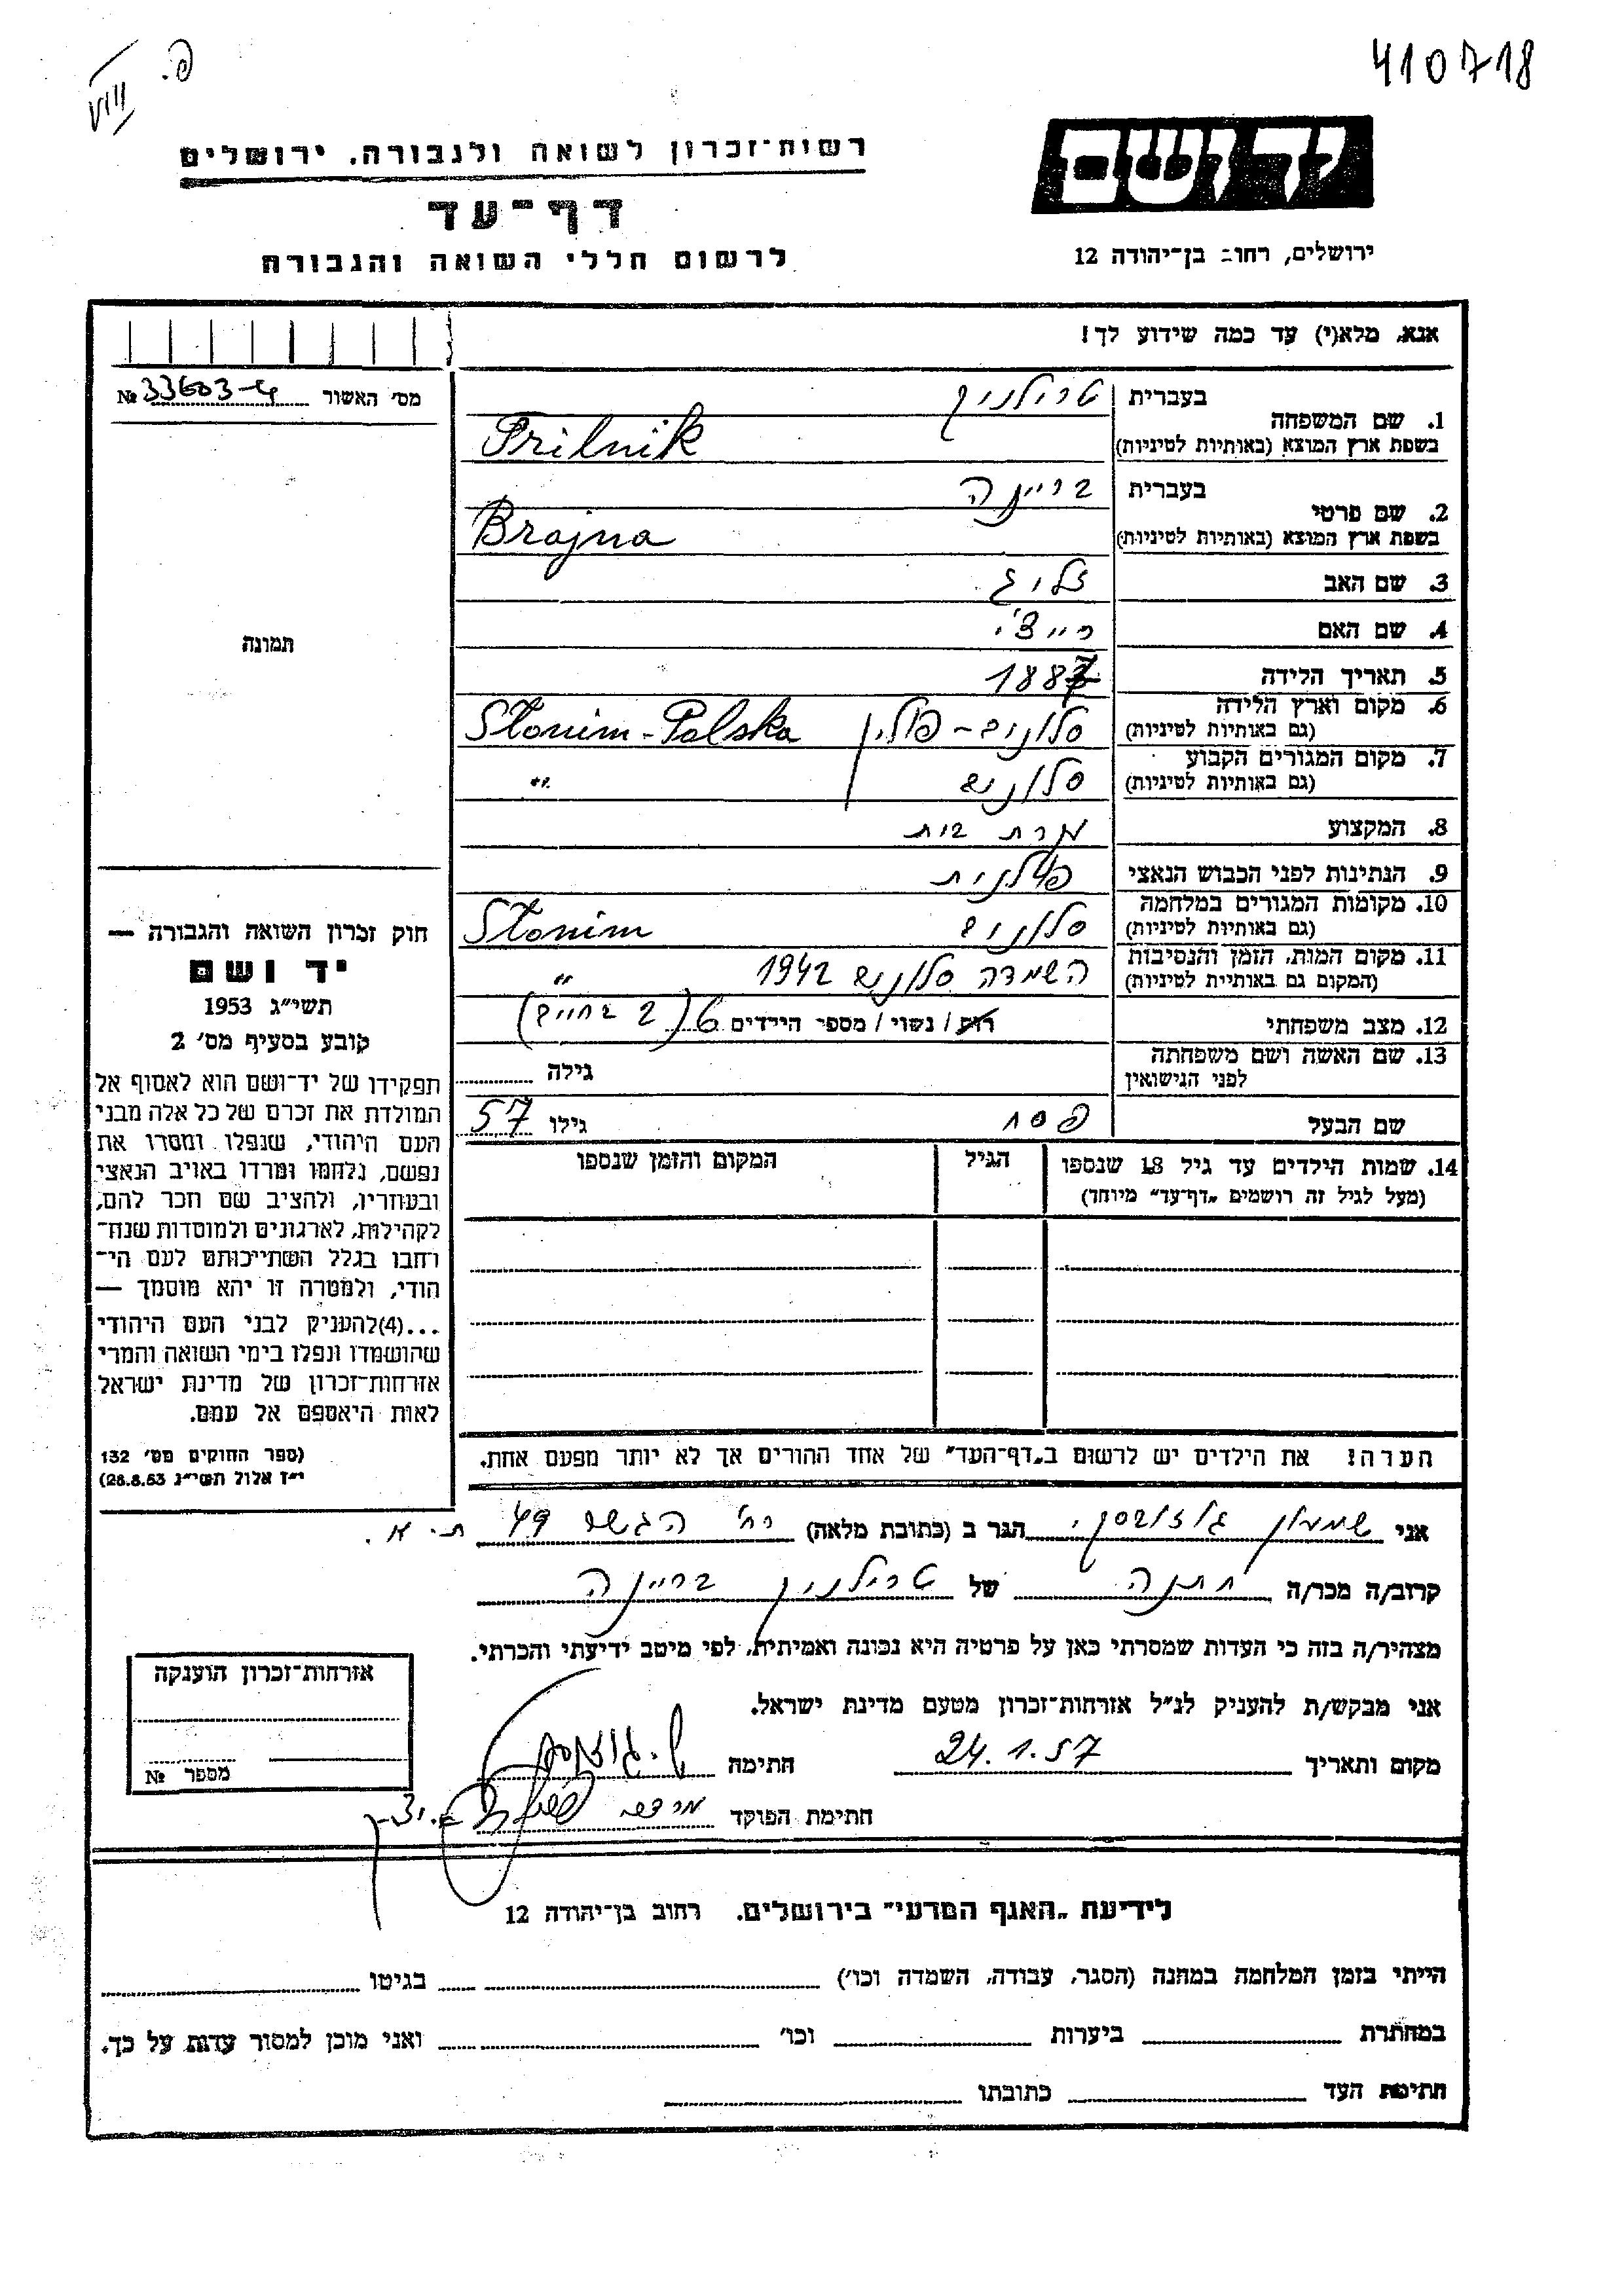 פ.
VIII
410718
רשות-זכרון לשואה ולגבורה, ירושלים
יד ושם
דף-עד
לרשום חללי השואה והגבורה
ירושלים, רחוב בן-יהודה 12
אנא, מלא(י) עד כמה שידוע לך!
מס' האשור № 33603-4
תמונה
1. שם המשפחה
בעברית טרילניק
בשפת ארץ המוצא (באותיות לטיניות) Trilnik
2. שם פרטי
בעברית בריינה
בשפת ארץ המוצא (באותיות לטיניות) Brajna
3. שם האב זליג
4. שם האם
5. תאריך הלידה 1887
6. מקום וארץ הלידה סלונים - פולין Słonim - Polska
(גם באותיות לטיניות)
7. מקום המגורים הקבוע סלונים "
(גם באותיות לטיניות)
8. המקצוע עקרת בית
9. הנתינות לפני הכבוש הנאצי פולנית
10. מקומות המגורים במלחמה סלונים Słonim
(גם באותיות לטיניות)
11. מקום המות, הזמן והנסיבות השמדה סלונים 1942 "
(המקום גם באותיות לטיניות)
12. מצב משפחתי רווק / נשוי / מספר הילדים 6 (2 בחיים)
13. שם האשה ושם משפחתה גילה
לפני הנישואין
שם הבעל פסח גילו 57
14. שמות הילדים עד גיל 18 שנספו הגיל המקום והזמן שנספו
(מעל לגיל זה רושמים "דף-עד" מיוחד)
הערה! את הילדים יש לרשום ב"דף-העד" של אחד ההורים אך לא יותר מפעם אחת.
חוק זכרון השואה והגבורה —
יד ושם
תשי"ג 1953
קובע בסעיף מס' 2
תפקידו של יד-ושם הוא לאסוף אל
המולדת את זכרם של כל אלה מבני
העם היהודי, שנפלו ומסרו את
נפשם, נלחמו ומרדו באויב הנאצי
ובעוזריו, ולהציב שם וזכר להם,
לקהילות, לארגונים ולמוסדות שנח-
רחבו בגלל השתייכותם לעם הי-
הודי, ולמטרה זו יהא מוסמך —
...(4) להעניק לבני העם היהודי
שהושמדו ונפלו בימי השואה והמרי
אזרחות-זכרון של מדינת ישראל
לאות היאספם אל עמם.
(ספר החוקים מס' 132
י"ז אלול תשי"ג 28.8.53)
אני שמעון הגר ב (כתובת מלאה) רח' הגשר 49 ת.א.
קרוב/ה מכר/ה חתנה של טרילניק בריינה
מצהיר/ה בזה כי העדות שמסרתי כאן על פרטיה היא נכונה ואמיתית, לפי מיטב ידיעתי והכרתי.
אני מבקש/ת להעניק לנ"ל אזרחות-זכרון מטעם מדינת ישראל.
מקום ותאריך 24.1.57 חתימה
חתימת הפוקד
אזרחות-זכרון הוענקה
מספר №
לידיעת "האגף המדעי" בירושלים, רחוב בן-יהודה 12
הייתי בזמן המלחמה במחנה (הסגר, עבודה, השמדה וכו') בגיטו
במחתרת ביערות וכו' ואני מוכן למסור עדות על כך.
חתימת העד כתובתו